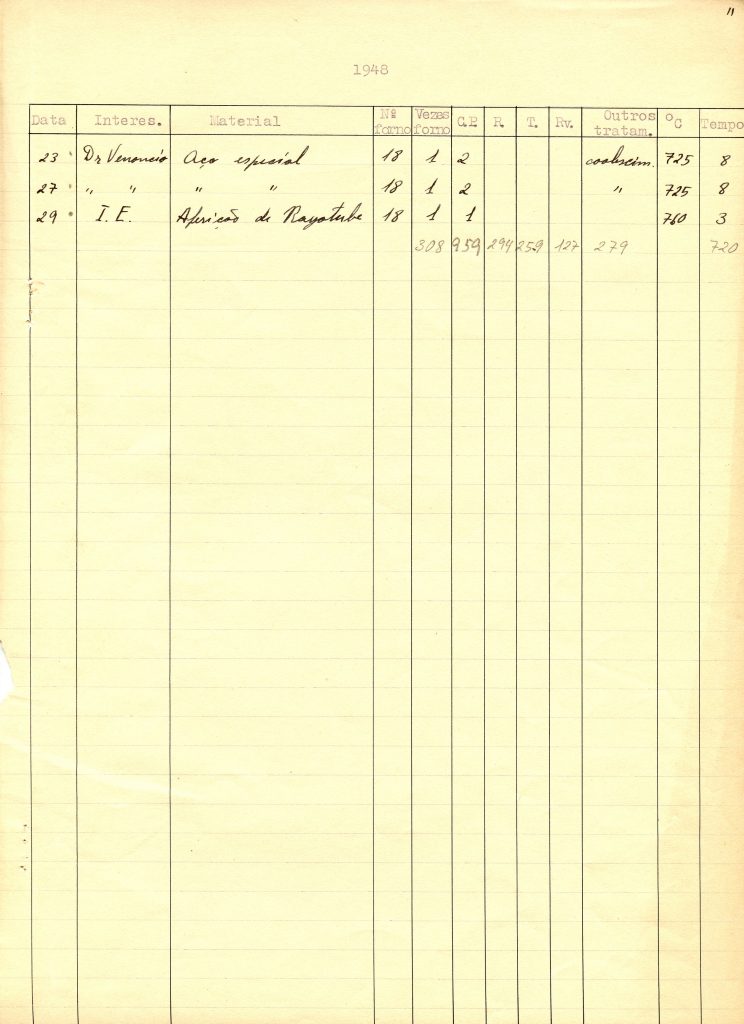 11
1948
Data Interes. Material Nº forno Vezes forno C.P. R. T. Rv. Outros tratam. ºC Tempo
23 Dr Venancio Aço especial 18 1 2 coalescim. 725 8
27 " " " " 18 1 2 " 725 8
29 I. E. Aferição de Rayotube 18 1 1 760 3
308 959 294 259 127 279 720